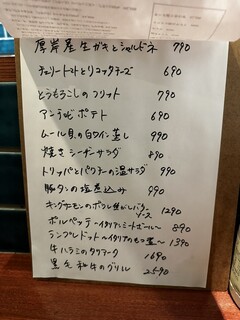 厚岸産生ガキとシャルドネ 790
チェリートマトとリコッタチーズ 690
とうもろこしのフリット 790
アンチョビポテト 690
ムール貝の白ワイン蒸し 990
焼きシーザーサラダ 890
トリッパとパクチーの温サラダ 990
豚タンの塩煮込み 990
キングサーモンのポワレ 焦がしバターソース 1290
ポルペッテ〜イタリアンミートボール〜 890
ランプレドット〜イタリアのもつ煮〜 1390
牛ハラミのタリアータ 1690
黒毛和牛のグリル 2590